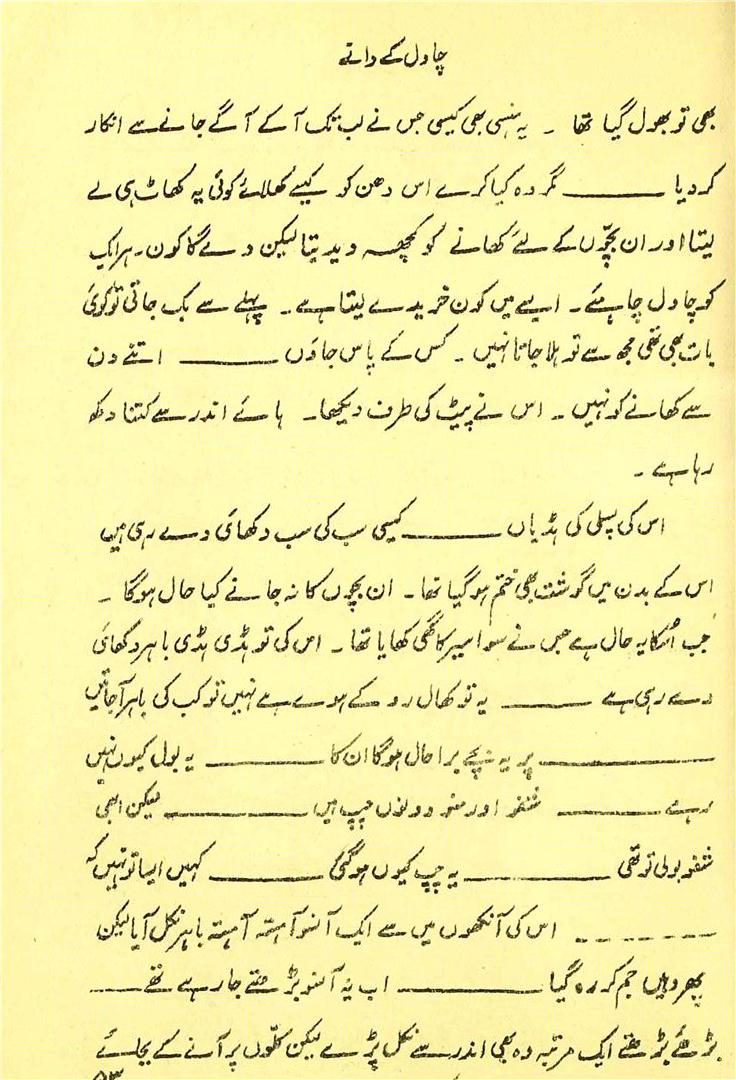 چاول کے دانے
بھی تو بھول گیا تھا ۔ یہ ہنسی بھی کیسی جس نے لب تک آ کے آگے جانے سے انکار
کر دیا ـــــــــ مگر وہ کیا کرے اس دھن کو کیسے کھلائے کوئی یہ کھاٹ ہی لے
لیتا اور ان بچّوں کے لئے کھانے کو کچھ دیدیتا لیکن دے گا کون۔ ہر ایک
کو چاول چاہئے۔ ایسے میں کون خریدے لیتا ہے۔ پہلے سے بک جاتی تو کوئی
بات بھی تھی مجھ سے تو ہلا جاتا نہیں ۔ کس کے پاس جاؤں ـــــــــ اتنے دن
سے کھانے کو نہیں ۔ اس نے پیٹ کی طرف دیکھا۔ ہائے اندر سے کتنا دکھ
رہا ہے ۔
اس کی پسلی کی ہڈیاں ـــــــــ کیسی سب کی سب دکھائی دے رہی ہیں
اس کے بدن میں گوشت بھی ختم ہو گیا تھا۔ ان بچوں کا نہ جانے کیا حال ہوگا ۔
جب اُسکا یہ حال ہے جس نے سوا سیر کا گھی کھایا تھا ۔ اس کی تو ہڈی ہڈی باہر دکھائی
دے رہی ہے ـــــــــ یہ تو کھال روکے ہوے ہے نہیں تو کب کی باہر آجاتیں
ـــــــــ پر یہ بچے برا حال ہوگا ان کا ـــــــــ یہ بول کیوں نہیں
رہے ـــــــــ شفو اور منو دونوں چپ ہیں ـــــــــ لیکن ابھی
شفو بولی تو تھی ـــــــــ یہ چپ کیوں ہوگئی ـــــــــ کہیں ایسا تو نہیں کہ
ــ ــ ــ ــ ــ ــ اس کی آنکھوں میں سے ایک آنسو آہستہ آہستہ باہر نکل آیا لیکن
پھر وہیں جم کر رہ گیا ـــــــــ اب یہ آنسو بڑھتے جا رہے تھے ــــــ
بڑھتے بڑھتے ایک مرتبہ وہ بھی اندر سے نکل پڑے لیکن کلّوں پر آنے کے بجائے
۵۳